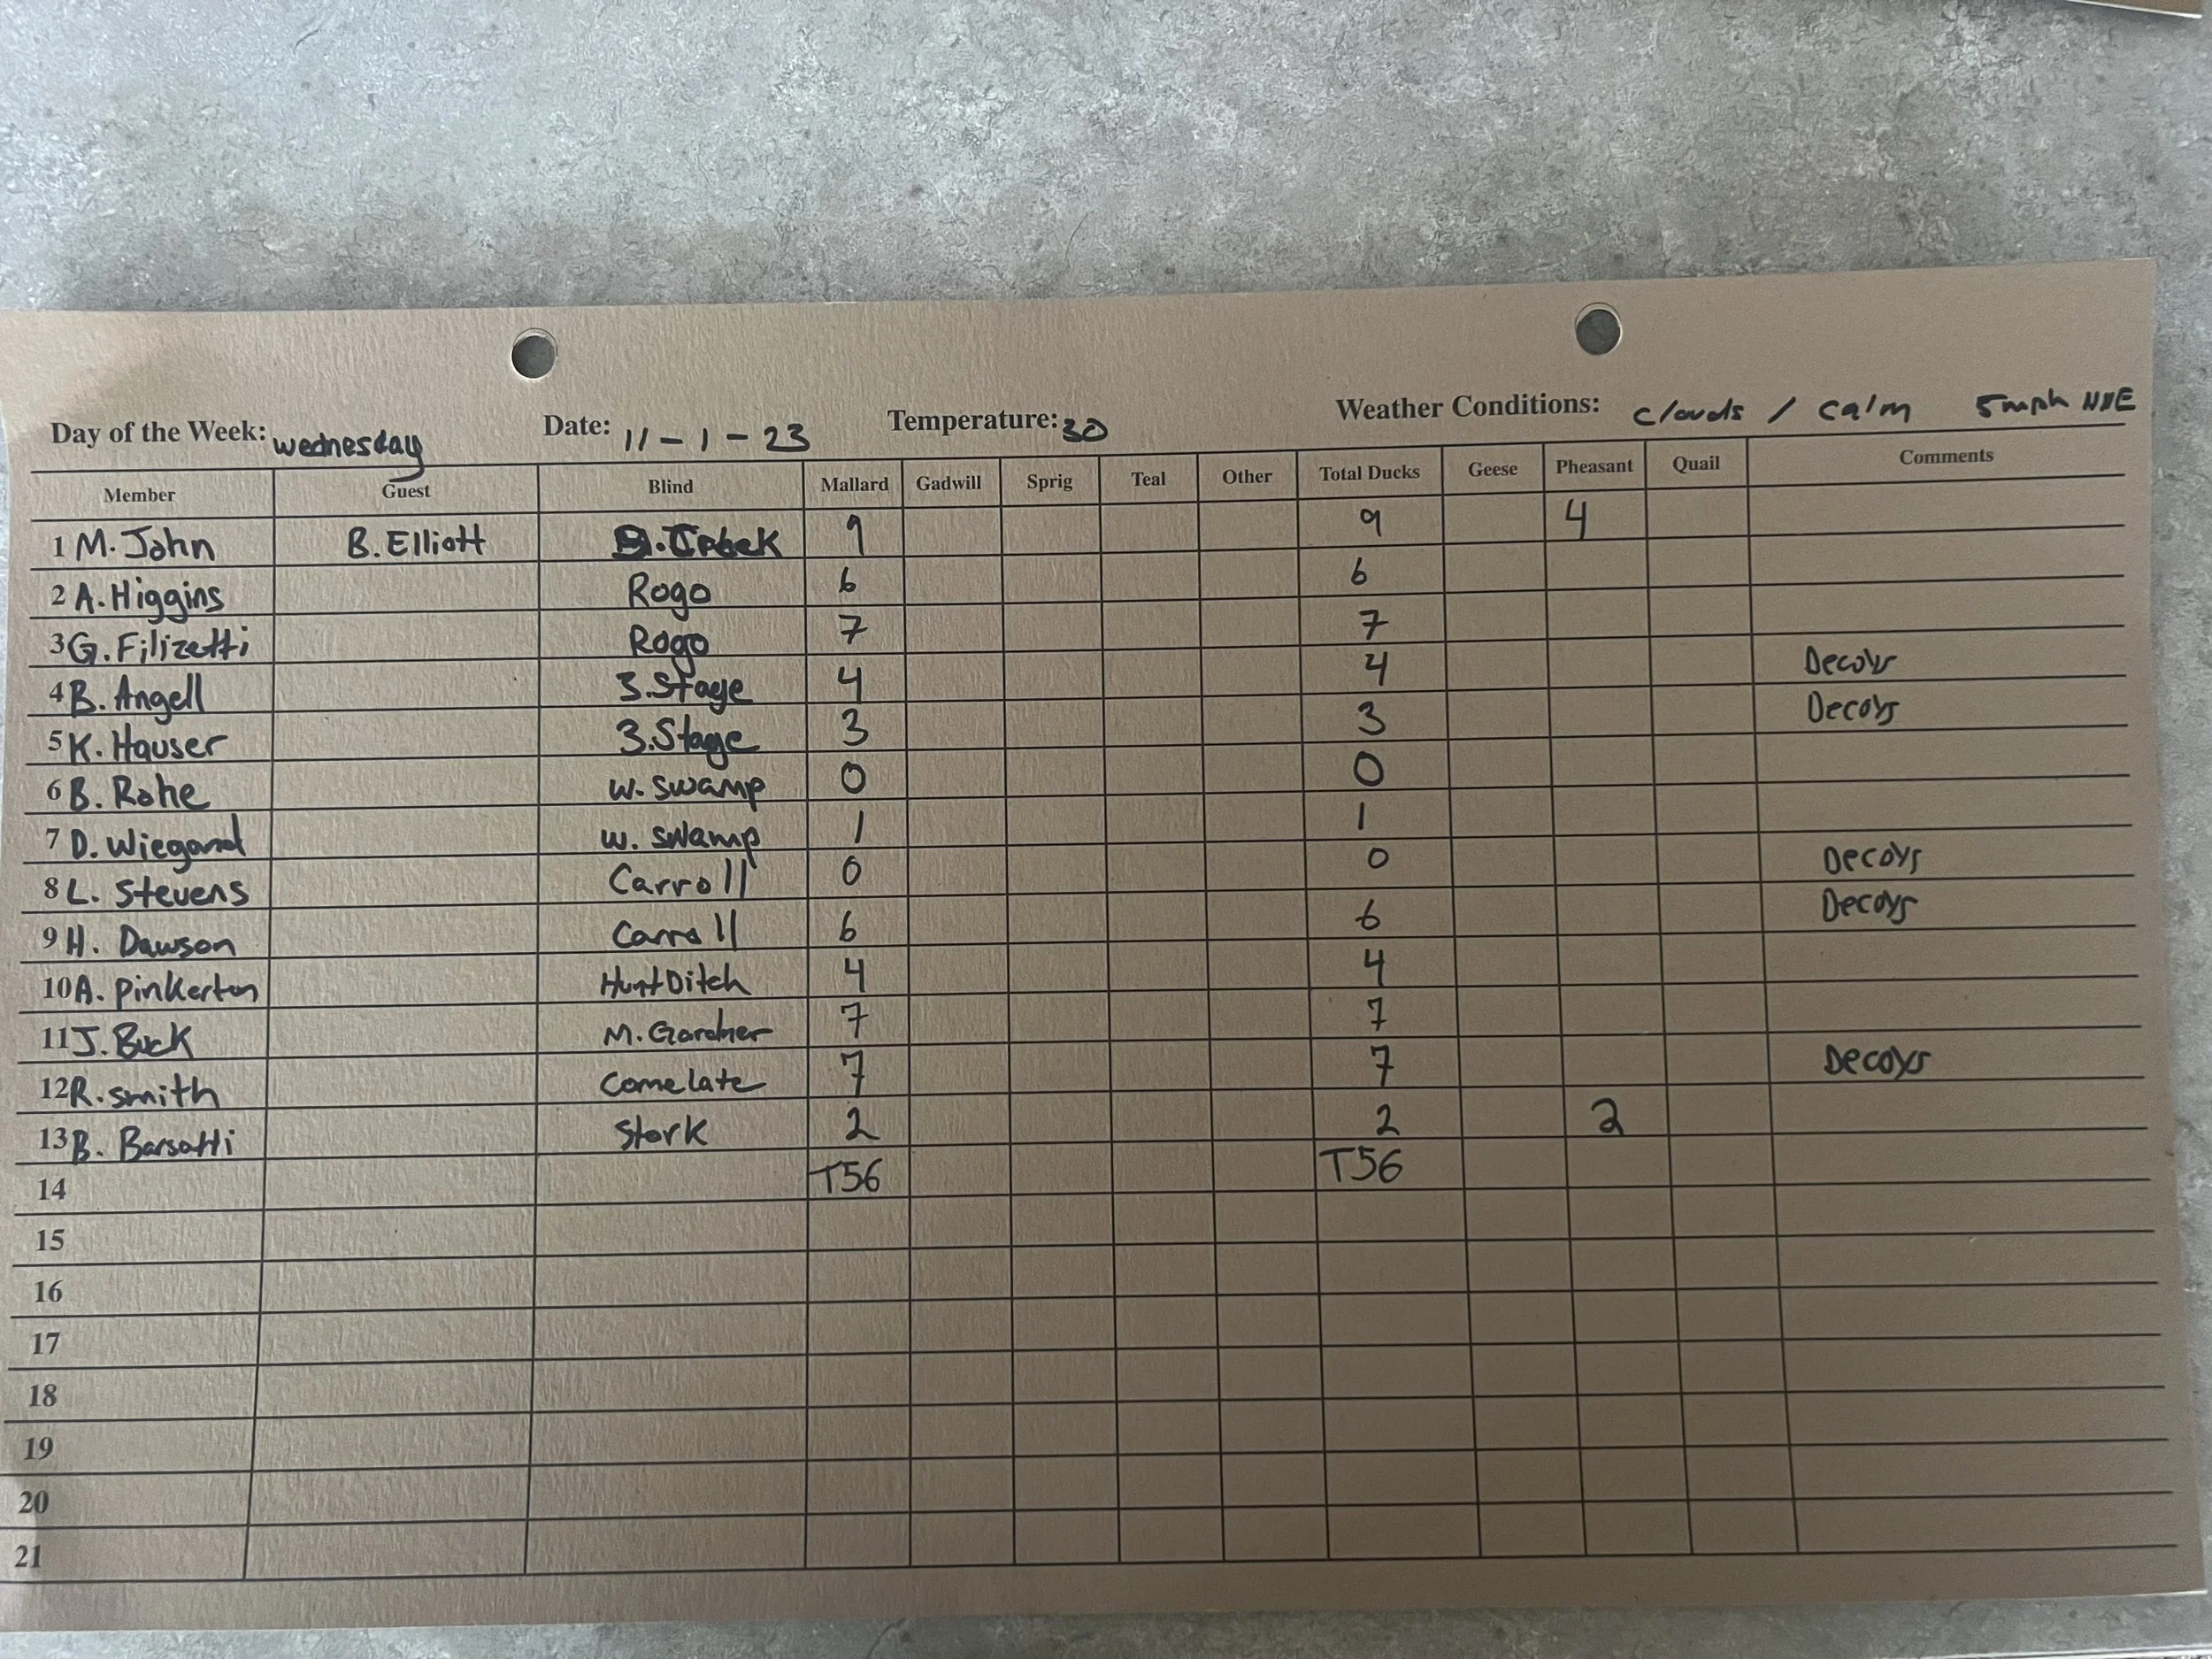 Day of the Week: wednesday Date: 11-1-23 Temperature: 30 Weather Conditions: clouds / calm 5mph NNE
Member Guest Blind Mallard Gadwill Sprig Teal Other Total Ducks Geese Pheasant Quail Comments
1 M. John B. Elliott 9 9 4
2 A. Higgins Rogo 6 6
3 G. Filizetti Rogo 7 7
4 B. Angell 3.Stage 4 4 Decoys
5 K. Hauser 3.Stage 3 3 Decoys
6 B. Rohe W. Swamp 0 0
7 D. Wiegand W. Swamp 1 1
8 L. Stevens Carroll 0 0 Decoys
9 H. Dawson Carroll 6 6 Decoys
10 A. Pinkerton Hunt Ditch 4 4
11 J. Buck M. Gardner 7 7
12 R. Smith Comelate 7 7 Decoys
13 B. Barsotti Stork 2 2 2
14 T56 T56
15
16
17
18
19
20
21